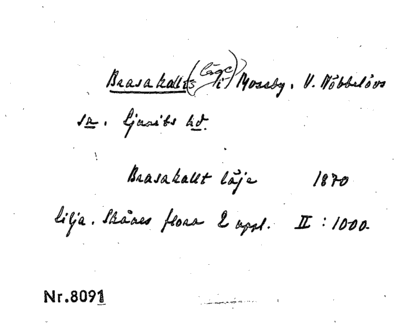 Brasakallts (läge) i Mossby, V. Nöbbelövs
sn. Ljunits hd.
Brasakallt läje 1870
Lilja. Skånes flora 2 uppl. II : 1000.
Nr.8091